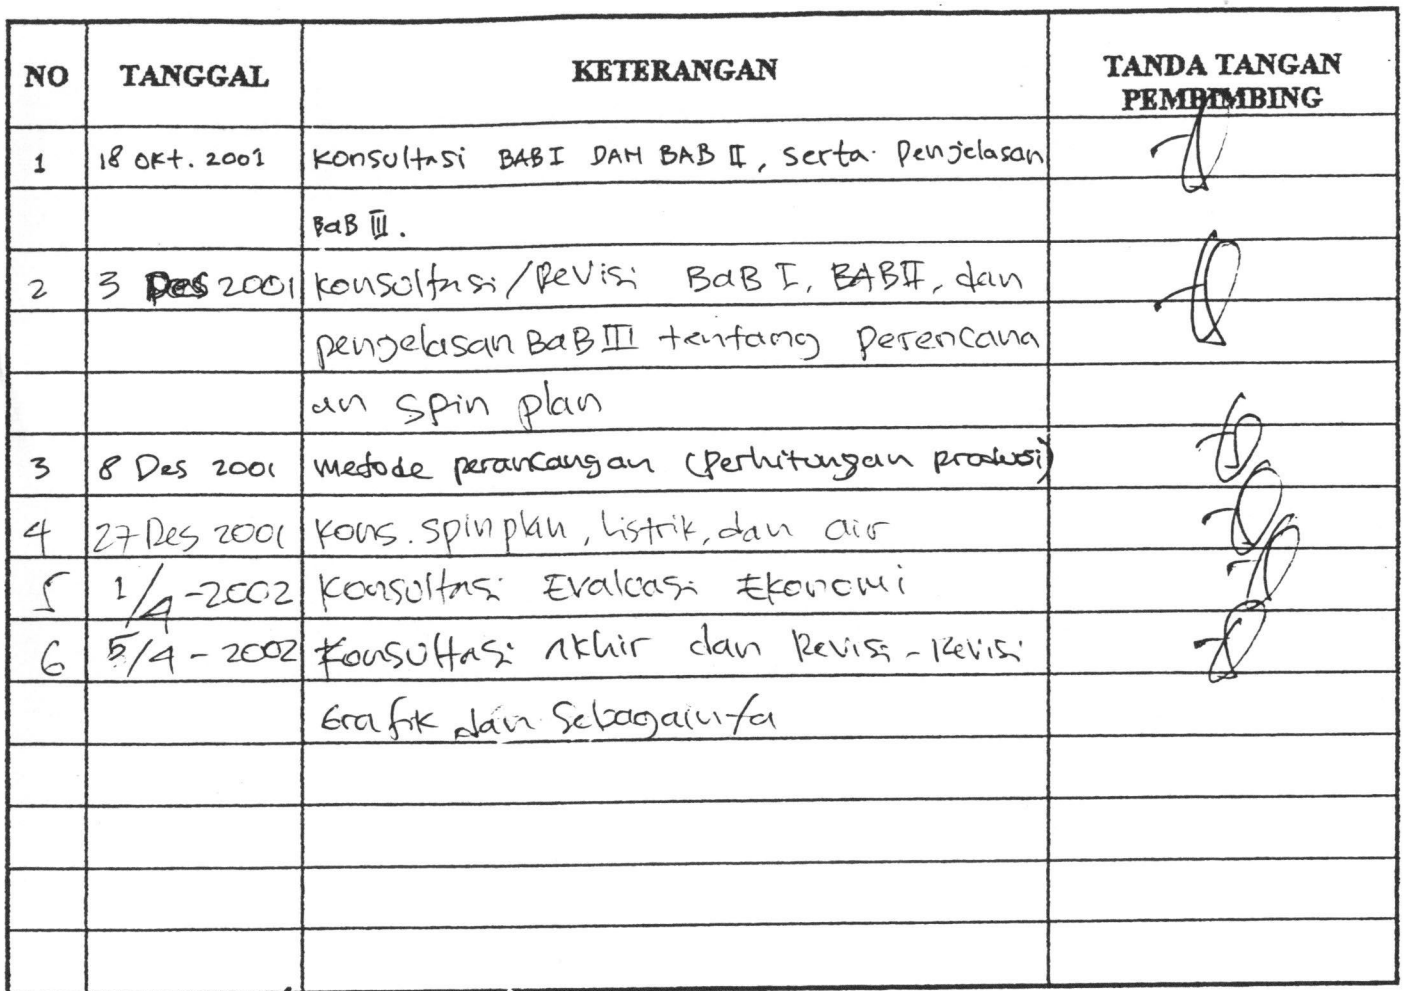 NO TANGGAL KETERANGAN TANDA TANGAN PEMBIMBING
1 18 OKt. 2001 Konsultasi BAB I DAN BAB II, serta Penjelasan
BaB III.
2 3 Des 2001 konsultasi/Revisi BaB I, BAB II, dan
penjelasan BaB III tentang Perencana
an spin plan
3 8 Des 2001 metode perancangan (Perhitungan produsi)
4 27 Des 2001 Kons. spinplan, listrik, dan air
5 1/4-2002 Konsultasi Evaluasi Ekonomi
6 5/4-2002 Konsultasi Akhir dan Revisi-Revisi
Grafik dan Sebagainya